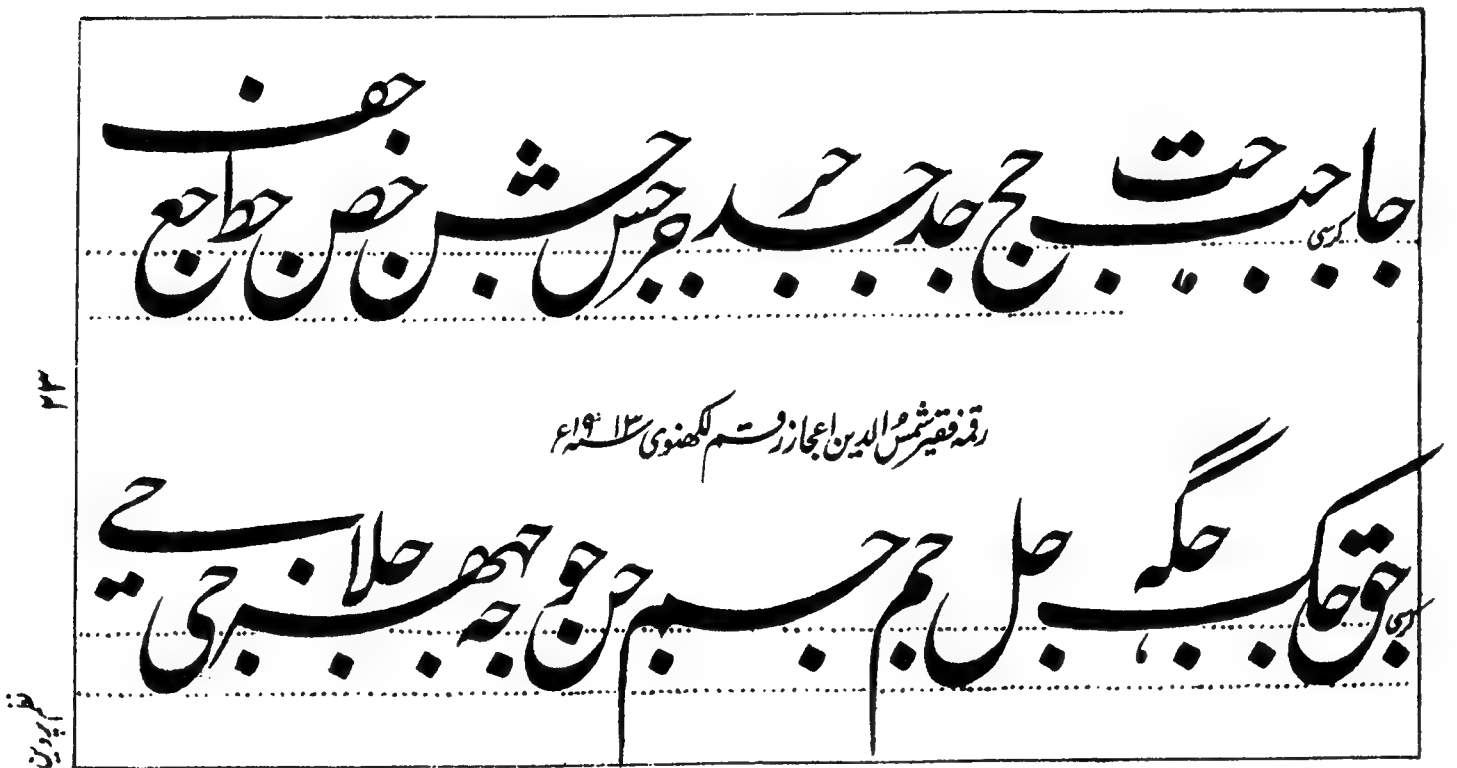 جا جب کرسی جت جج جد جد جر جر جس جش جص جط جع جف
رقمہ فقیر شمس الدین اعجاز رقم لکھنوی سنہ ۱۹۱۳ء
جق کرسی جک جگہ جل جم جسم جن جو جہ جلا جی جے
۲۳
نظم پروین